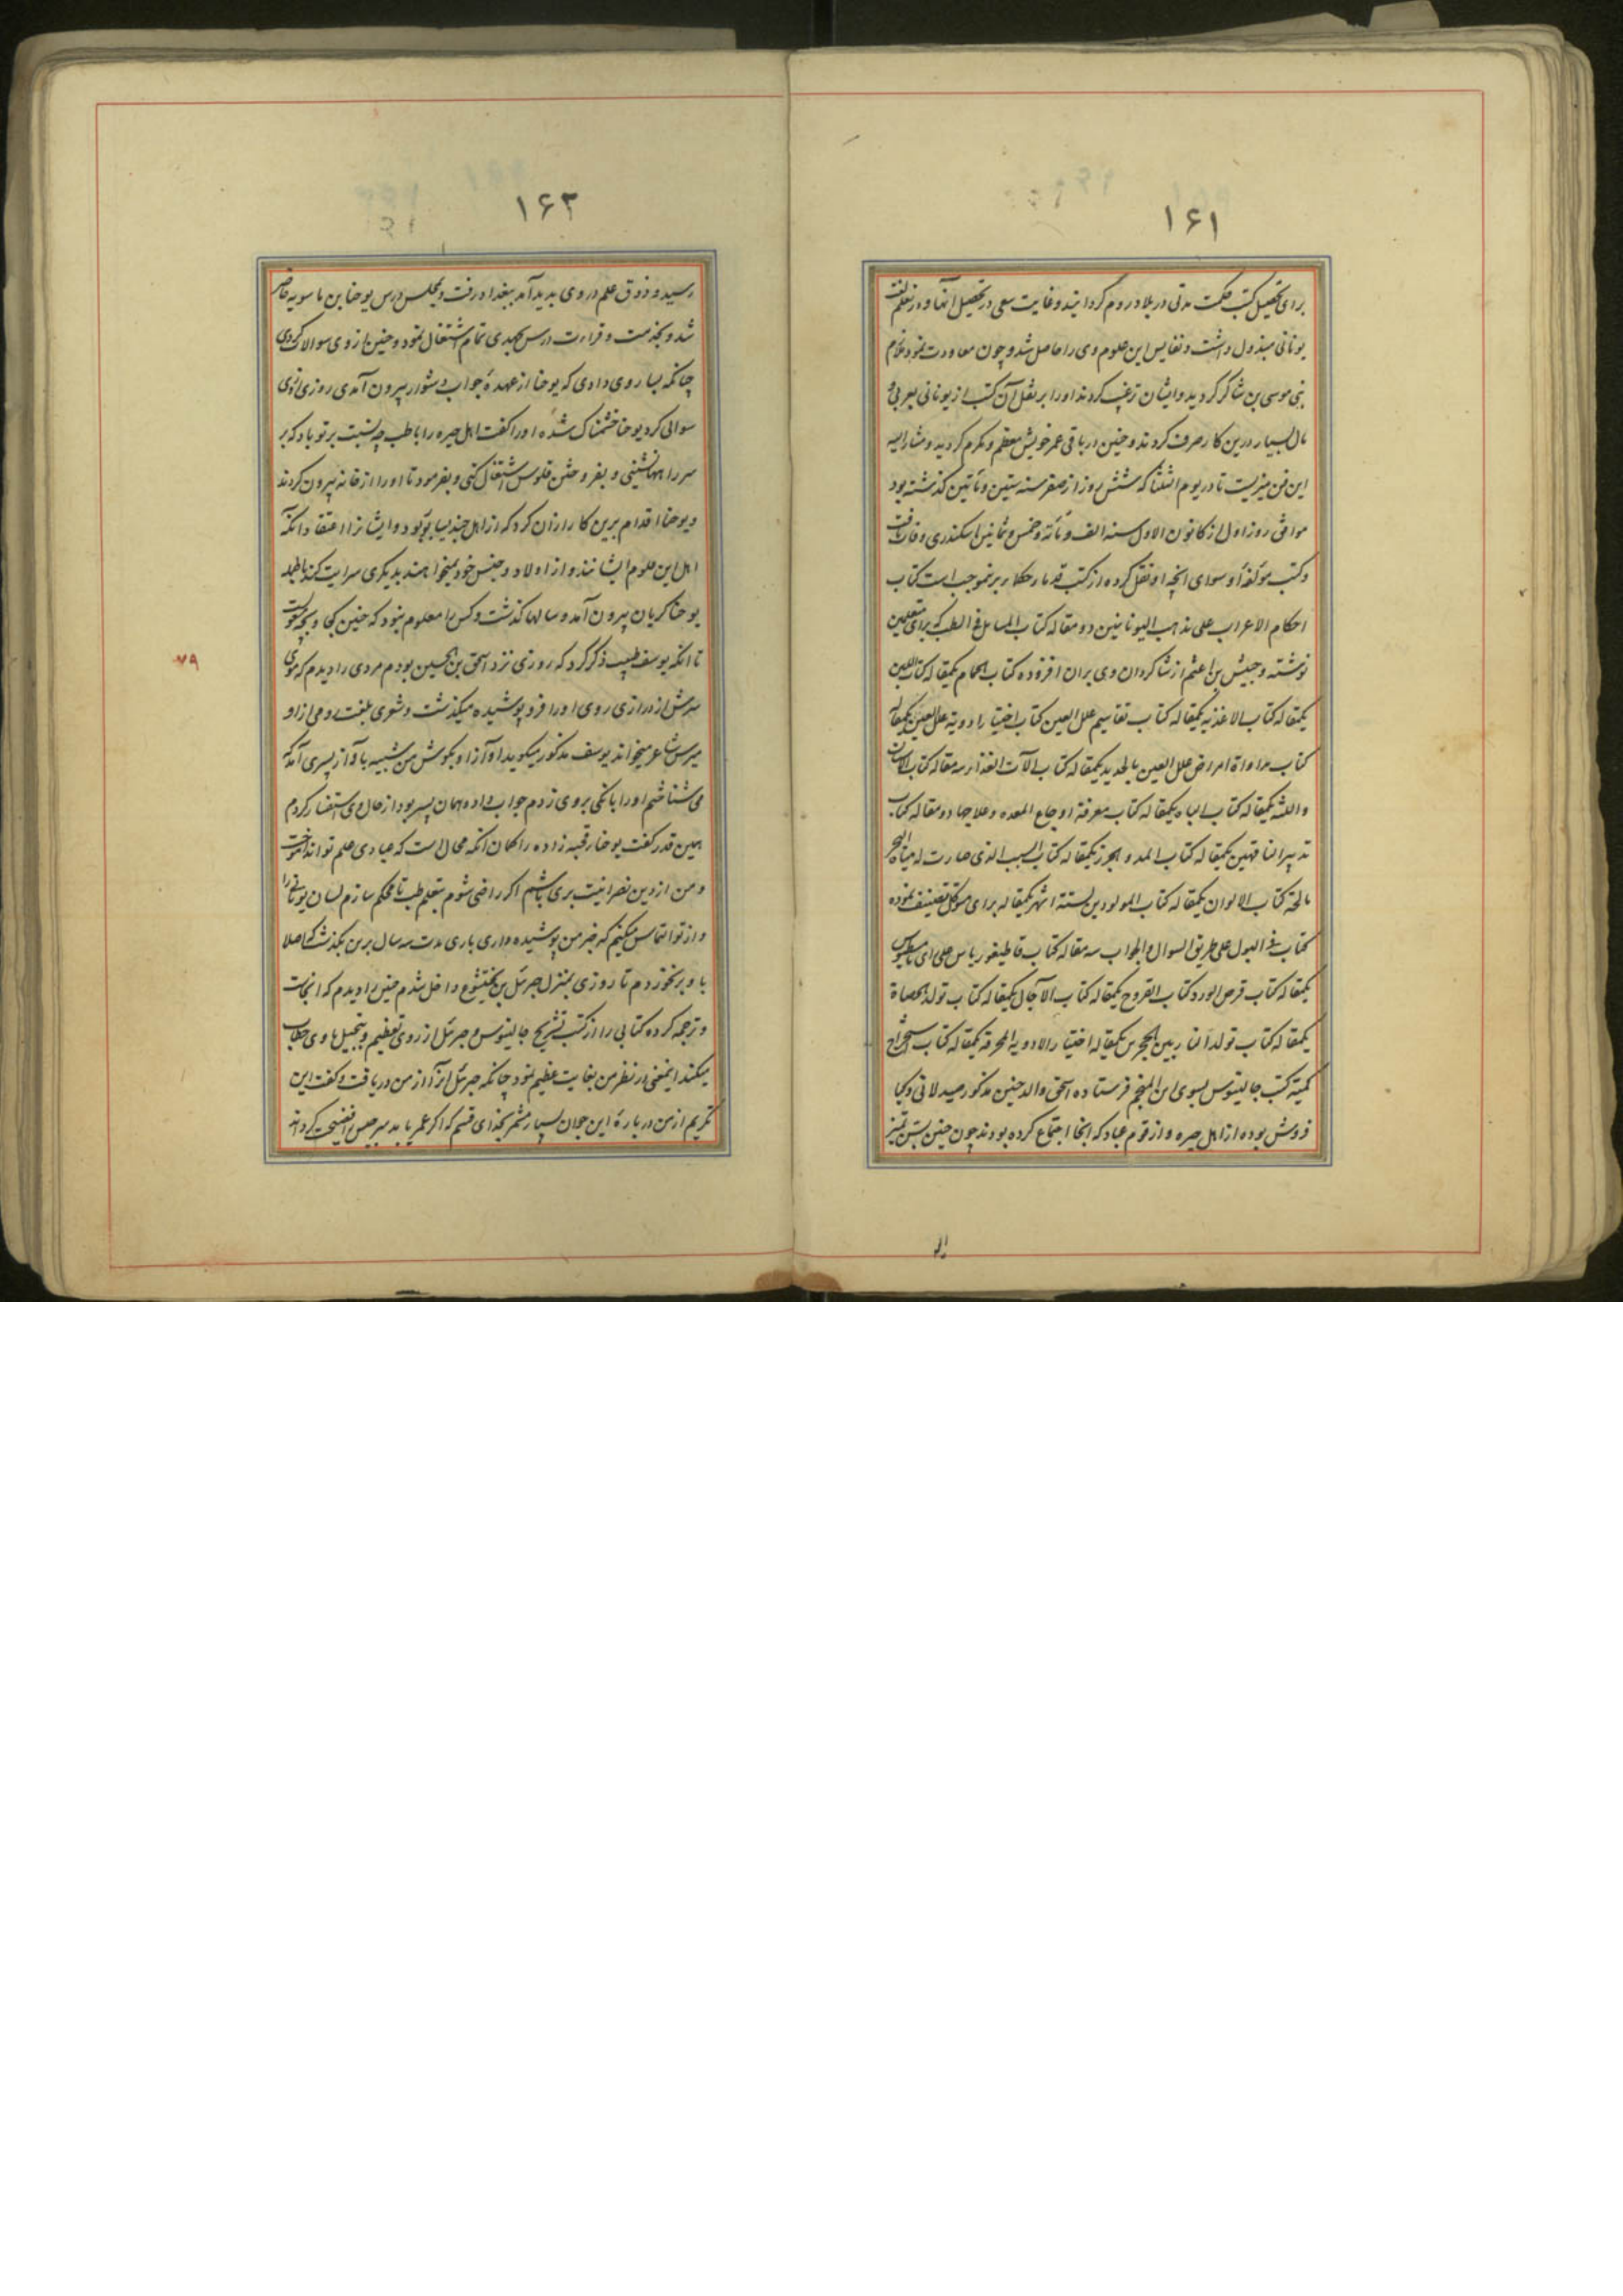 ۱۶۱
برای تحصیل کتب حکمت مدتی در بلاد روم گردانید و غایت سعی در تحصیل آنها و در تعلم لغت
یونانی مبذول داشت و نفایس این علوم وی را حاصل شد و چون معاودت نمود ملازم
بنی موسی بن شاکر گردید و ایشان ترغیب کردند او را بر نقل آن کتب از یونانی بعربی و
مال بسیار درین کار صرف کردند و حنین در باقی عمر خویش معظم و مکرم گردید و مشارالیه
این فن میزیست تا در یوم الثلثا که شش روز از صفر سنه ستین و مأتین گذشته بود
موافق روز اول از کانون الاول سنه الف و مأئة و خمس و ثمانین اسکندری وفات یافت
و کتب مؤلفهٔ او سوای انچه او نقل کرده از کتب قدمار حکما بر نموجب است کتاب
احکام الاعراب علی مذهب الیونانیین دو مقاله کتاب المسائل فی الطب که برای متعلمین
نوشته و حبیش بن اعثم از شاگردان وی بران افزوده کتاب الحمام یکمقاله کتاب اللبن
یکمقاله کتاب الاغذیه یکمقاله کتاب تقاسیم علل العین کتاب اختیار ادویة علل العین یکمقاله
کتاب مداواة امراض علل العین بالحدید یکمقاله کتاب الآت الغذا سه مقاله کتاب الاسنان
واللثه یکمقاله کتاب الباه یکمقاله کتاب معرفة اوجاع المعده وعلاجها دو مقاله کتاب
تدبیر الناقهین یکمقاله کتاب المد والجزر یکمقاله کتاب السبب الذی صارت له میاه البحر
مالحة کتاب الالوان یکمقاله کتاب المولودین لستة اشهر یکمقاله برای متوکل تصنیف نموده
کتاب فی البول علی طریق السوال والجواب سه مقاله کتاب قاطیغوریاس علی رای ثامسطیوس
یکمقاله کتاب قرص الورد کتاب القروح یکمقاله کتاب الآجال یکمقاله کتاب تولد الحصاة
یکمقاله کتاب تولد النار بین الحجرین یکمقاله اختیار الادویه المحرقه یکمقاله کتاب استخراج
کمیته کتب جالینوس بسوی ابن المنجم فرستاده اسحق والد حنین مذکور صیدلانی و کیا
فروش بوده از اهل حیره و از قوم عباد که انجا اجتماع کرده بودند چون حنین بسن تمیز
۱۶۳
رسید و ذوق علم در وی پدید آمد ببغداد رفت و بمجلس درس یوحنا بن ماسویه حاضر
شد و بخدمت و قرارت درس بجدی تمام اشتغال نمود و حنین از وی سوالات کردی
چنانکه بسا روی دادی که یوحنا از عهدهٔ جواب دشوار بیرون آمدی روزی از وی
سوالی کرد یوحنا خشمناک شده او را گفت اهل حیره را با طب چه نسبت بر تو باد که بر
سر راهها نشینی و بفروختن فلوس اشتغال کنی و بفرمود تا او را از خانه بیرون کردند
و یوحنا اقدام برین کار از ان کرد که از اهل جندیسابور بود و ایشانرا اعتقاد انکه
اهل این علوم ایشانند و از اولاد و جنس خود نمیخواهند بدیگری سرایت کند باطبا
یوحنا گریان بیرون آمد و سالها گذشت و کس را معلوم نبود که حنین کجا و بچه
تا انکه یوسف طبیب ذکر کرد که روزی نزد اسحق بن الحسین بودم مردی را دیدم که موی
سرش از درازی روی او را فرو پوشیده میگذشت و شعری بلغت رومی از او
میرس شاعر میخواند یوسف مذکور میگوید اه آواز او بگوش من شبیه بآواز پسری آمد که
می شناختم او را بانگی بروی زدم جواب داد همان پسر بود از حال وی استفسار کردم
همین قدر گفت یوحنا رقبه زاده را گمان انکه محال است که عبادی علم تواند آموخت
و من از دین نصرانیت بری باشم اگر راضی شوم بتعلم طب تا محکم سازم لسان یونانی را
و از تو التماس میکنم که خبر من پوشیده داری باری مدت سه سال برین بگذشت که اصلا
با او بر نخوردم تا روزی بمنزل جبرئل بن بختیشوع داخل شدم حنین را دیدم که انجاست
و ترجمه کرده کتابی را از کتب تشریح جالینوس و جبرئل از روی تعظیم و تبجیل با وی خطاب
میکند اینمعنی در نظر من بغایت عظیم نمود چنانکه جبرئل انرا از من دریافت و گفت این
تکریم از من در بارهٔ این جوان بسیار مشمر بخدای قسم که اگر عمر یابد سرجیس را فضیحت گرداند
۷۹